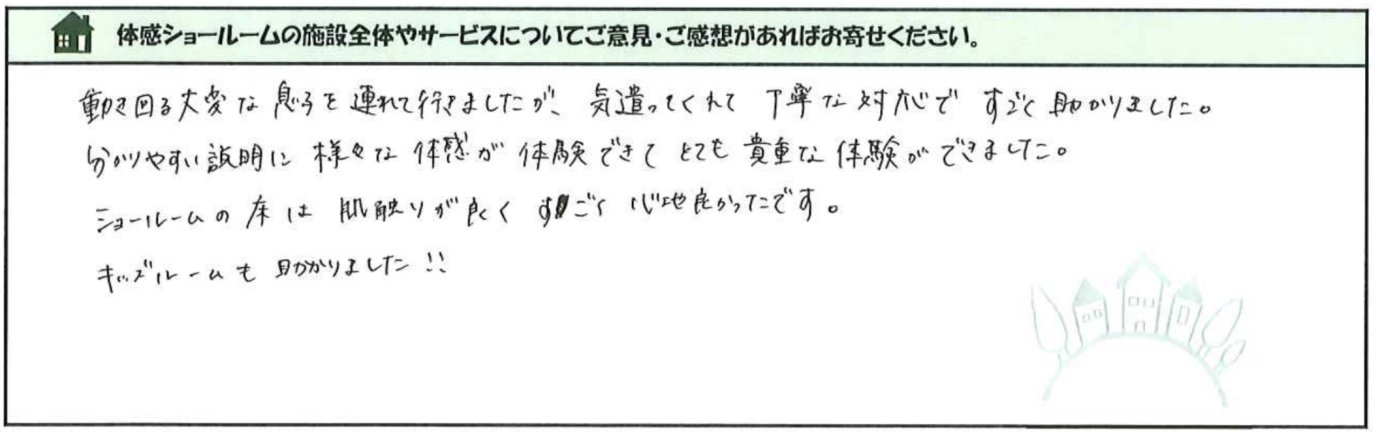 体感ショールームの施設全体やサービスについてご意見・ご感想があればお寄せください。
動き回る大変な息子を連れて行きましたが、気遣ってくれて丁寧な対応ですごく助かりました。
分かりやすい説明に様々な体感が体験できてとても貴重な体験ができました。
ショールームの床は肌触りが良くすごく心地良かったです。
キッズルームも助かりました!!